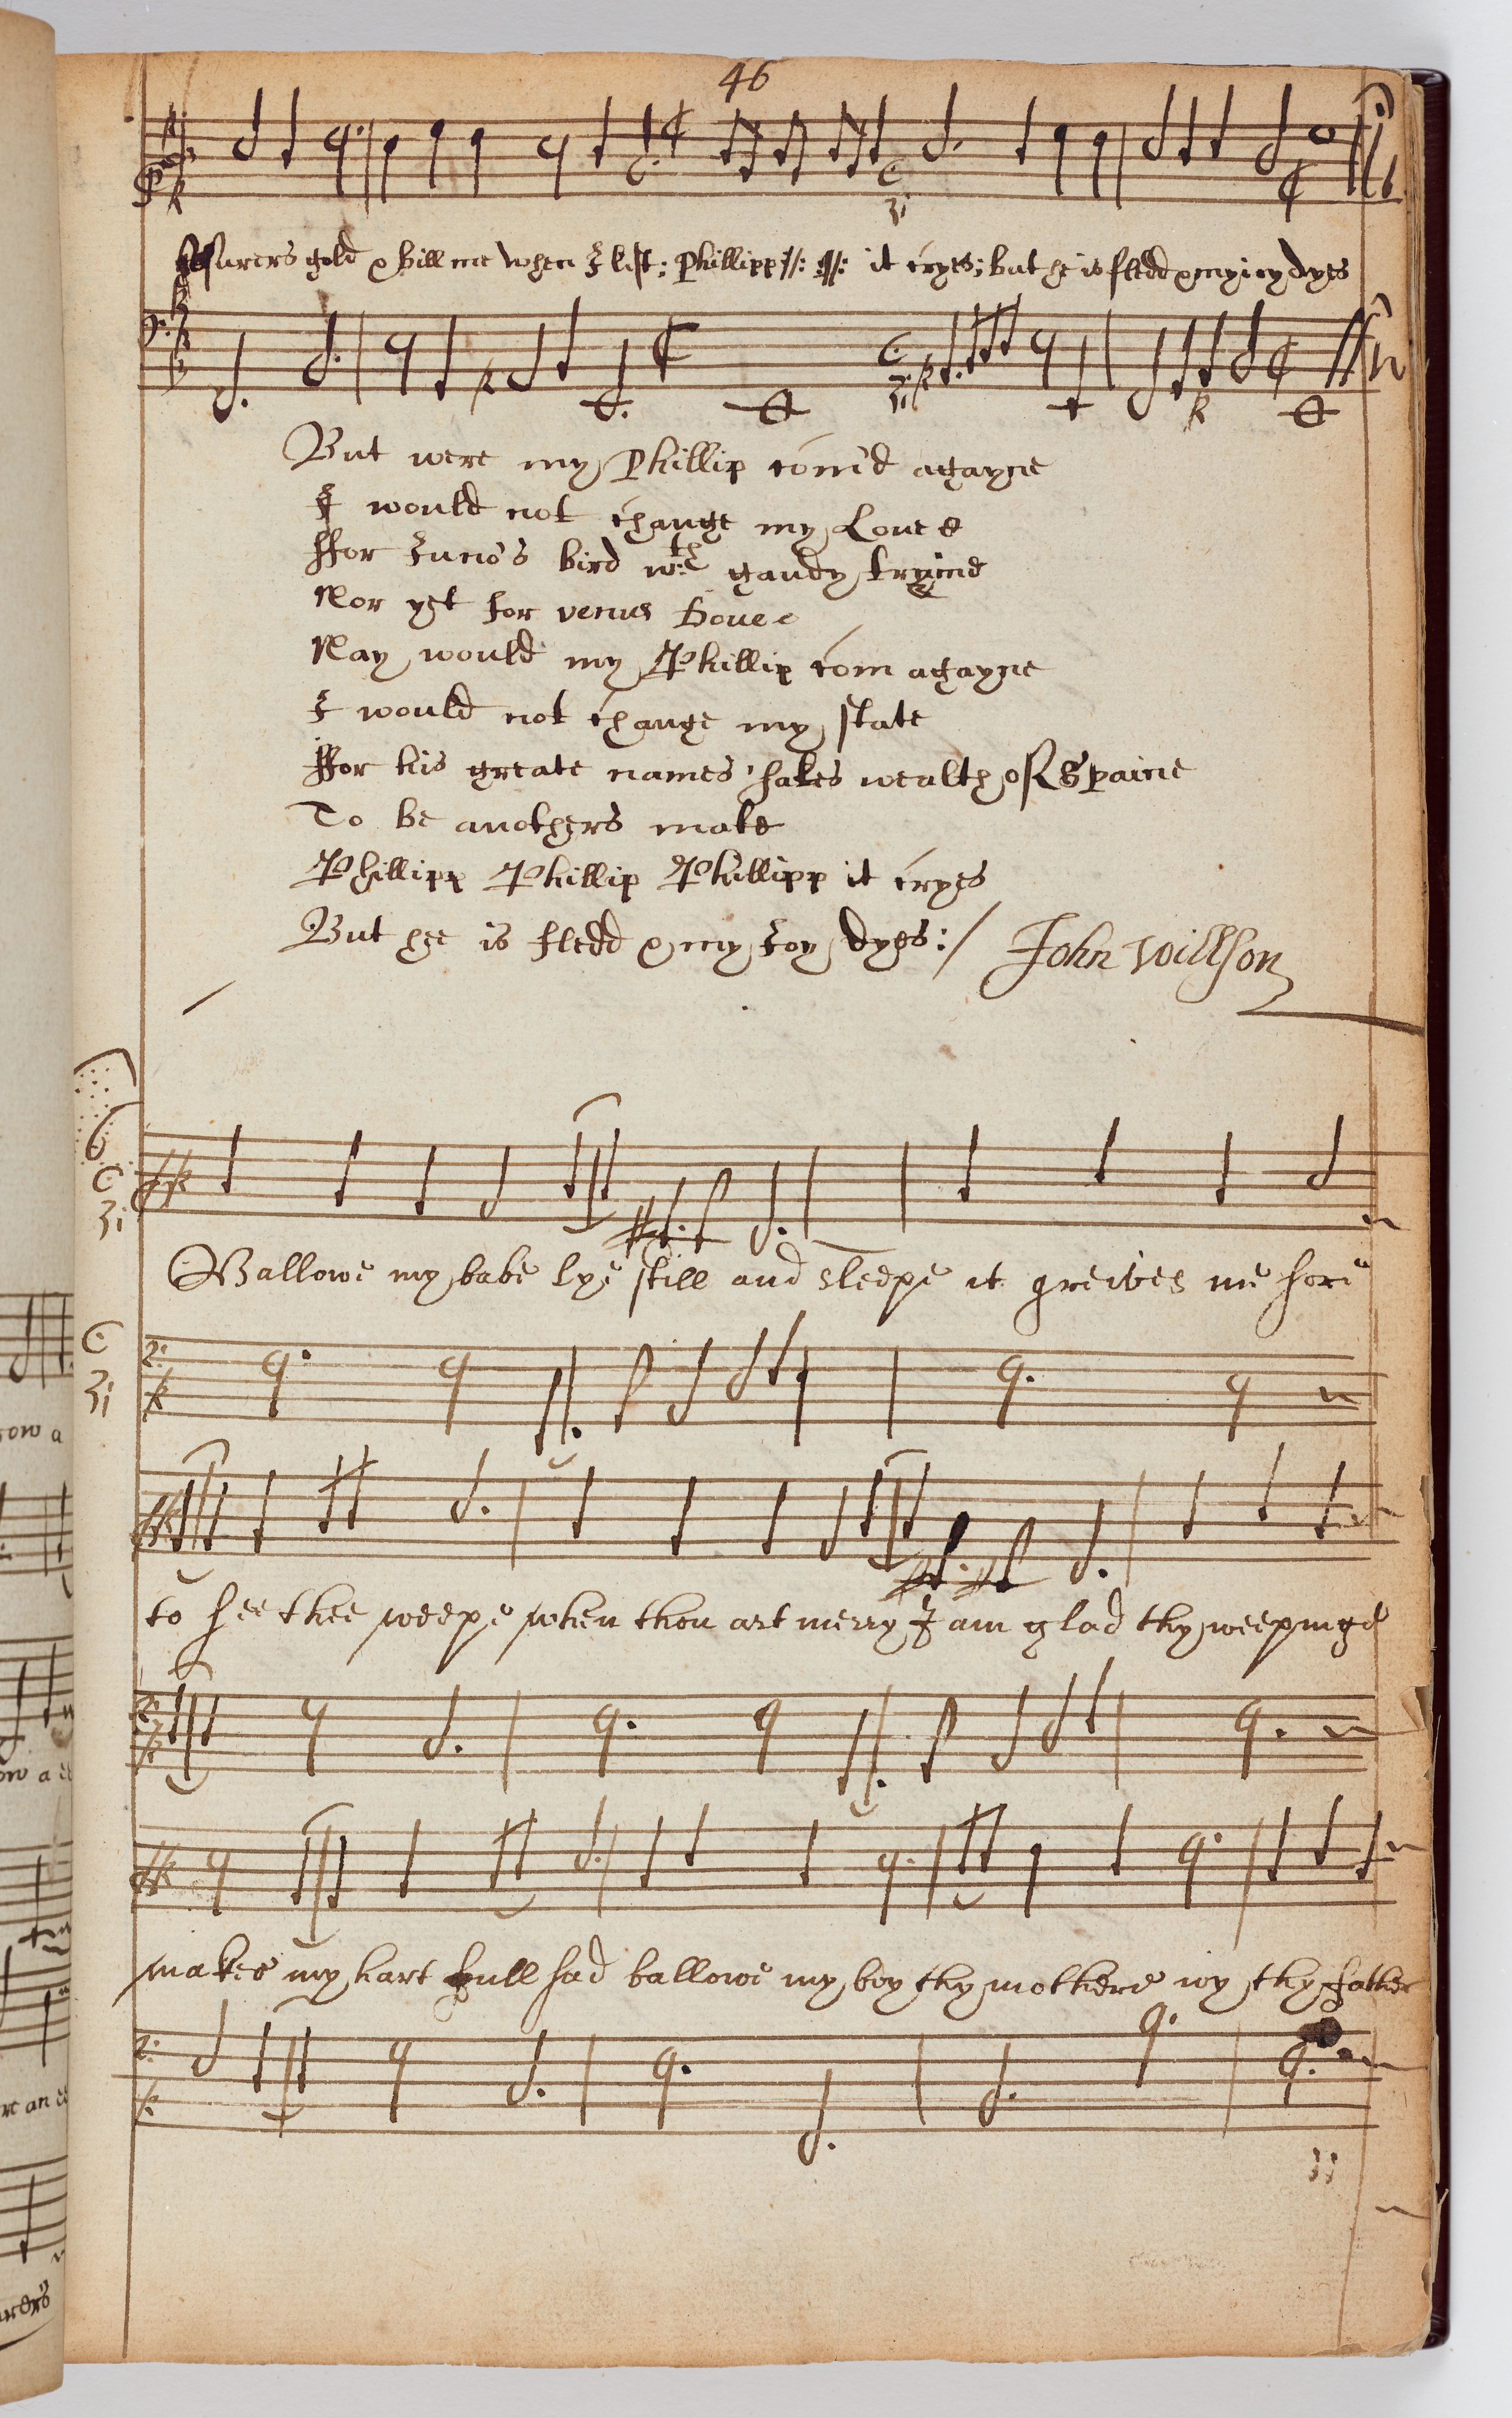 46
gold & kill me when I list: Phillipp //: //: it cryes: but he is fledd & my ioy dyes
But were my Phillip com'd agayne
I would not change my Loue
ffor Juno's bird wth gaudy trayne
Nor yet for venus Doue
Nay would my Phillip com agayne
I would not change my state
ffor his greate names sakes wealth of Spaine
To be anothers mate
Phillipp Phillip Phillipp it cryes
But hee is fledd & my Joy dyes:/ John Willson
6
C
3i
Ballowe my babe lye still and sleepe it greives me sore
C
3i
to see thee weepe when thou art merry I am glad thy weepinge
makes my hart full sad ballowe my boy thy mothers ioy thy father